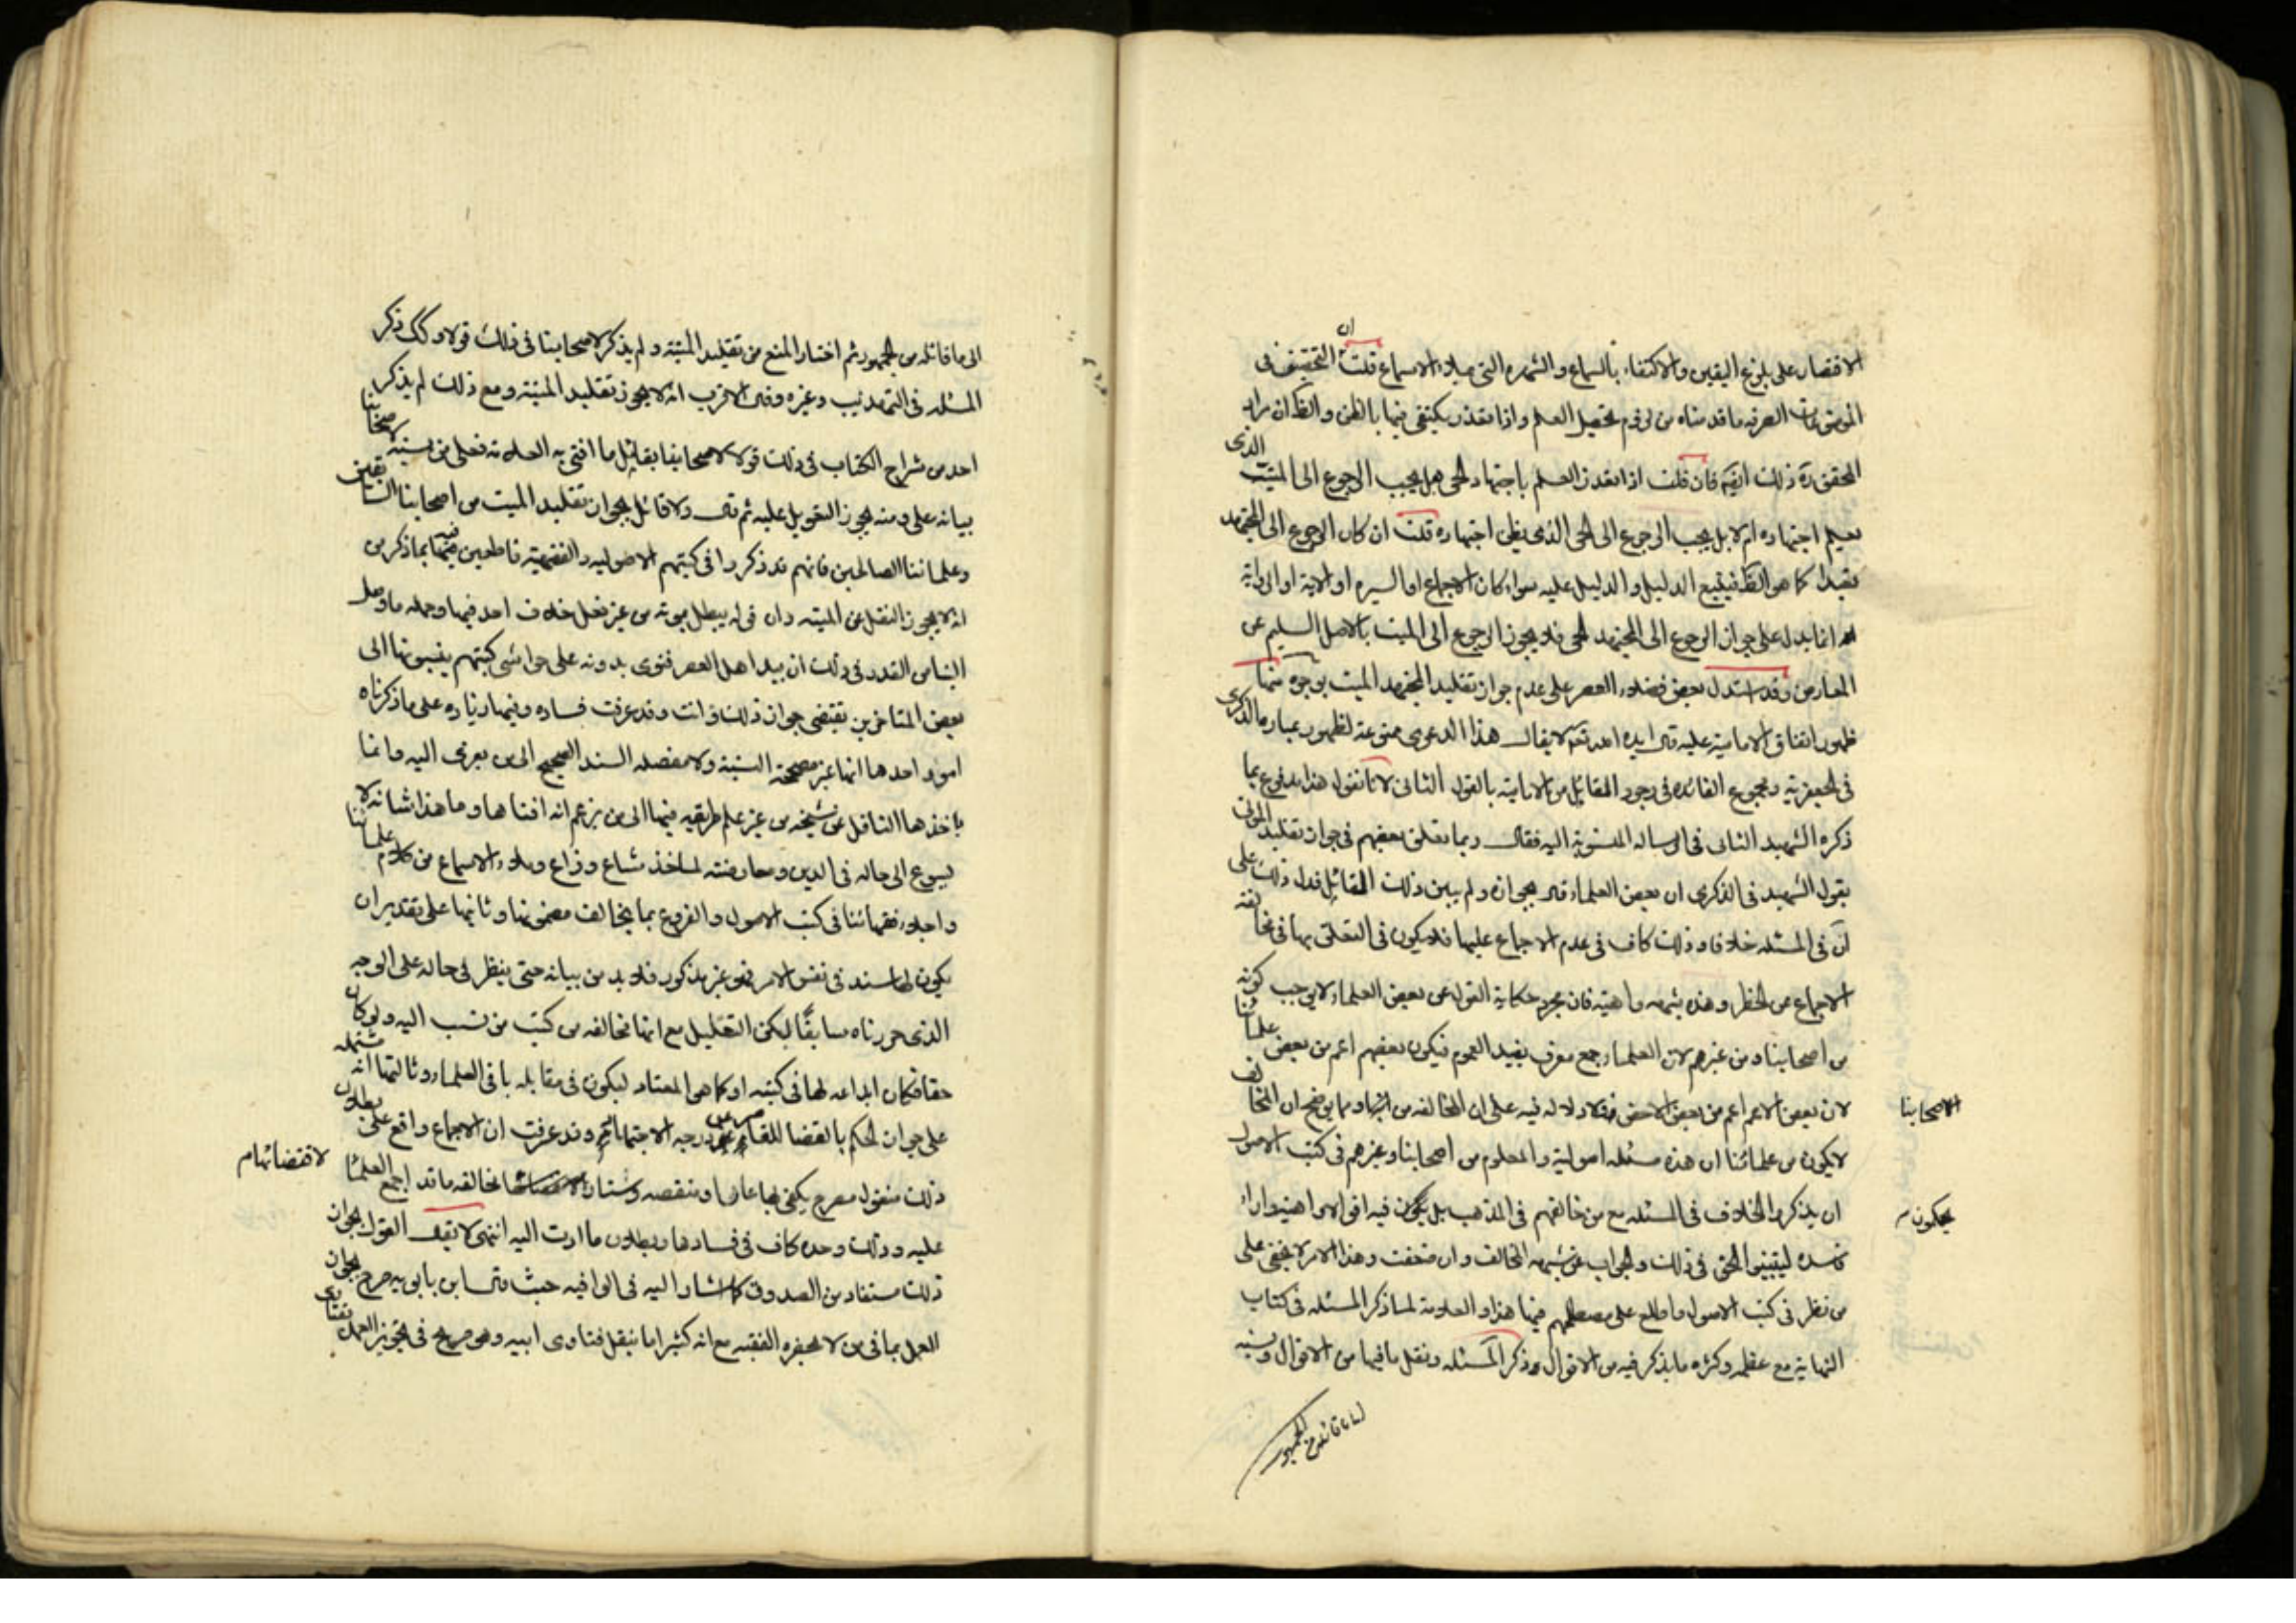 الاقتصار على بلوغ اليقين والاكتفاء بالسماع والشهره التى ميلاء الاسماع قلت ان التحقيق فى
الموضوعات الصرفه ما قدمناه من لزوم تحصيل العلم واذا تعذر يكتفى فيها بالظن والظ ان مراد
المحقق ره ذلك ايضا فان قلت اذا تعذر العلم باجتهاد الحى هل يجب الرجوع الى الميت الذى
يعلم اجتهاده ام لا بل يجب الرجوع الى الحى الذى يظن اجتهاده قلت ان كان الرجوع الى المجتهد
تعبدا كما هو الظ فيتبع الدليل والدليل عليه سواء كان الاجماع او السيره او الاية او الرواية
انما يدل على جواز الرجوع الى المجتهد الحى فلا يجوز الرجوع الى الميت بالاصل السليم عن
المعارض وقد استدل بعض فضلاء العصر على عدم جواز تقليد المجتهد الميت بوجوه منها
ظهور اتفاق الامامية عليه قال ايده الله تعم لا يقال هذا الدعوى ممنوعة لظهور عبارة الذكرى
فى الجعفرية ومجمع الفائده فى وجود القائل من الامامية بالقول الثانى لانا نقول هذا مدفوع بما
ذكره الشهيد الثانى فى الرساله المنسوبة اليه فقال وبما تعلق بعضهم فى جواز تقليد الموتى
بقول الشهيد فى الذكرى ان بعض العلماء قال بجوازه ولم يبين ذلك القائل فدل ذلك على
ان فى المسئله خلافا وذلك كاف فى عدم الاجماع عليها فلا يكون فى التعلق بها فى مخالفة
الاجماع عن الحظر وهذه شبهه واهية فان مجرد حكاية القول عن بعض العلماء لا يوجب كونه
من اصحابنا ومن غيرهم لان العلماء جمع معرف يفيد العموم فيكون بعضهم اعم من بعض علمائنا
لان بعض الاعم اعم من بعض الاخص فلا دلاله فيه على ان المخالفه من اصحابنا ومما يوضح ان المخالف
لا يكون من علمائنا ان هذه مسئله اصولية والمعلوم من اصحابنا وغيرهم فى كتب الاصول
ان يذكروا الخلاف فى المسئله مع من خالفهم فى المذهب بل يحكون فيه اقوالا واهية واراء
فاسده ليقينوا الحق فى ذلك والجواب عن شبهه المخالف وان ضعفت وهذا الامر لا يخفى على
من نظر فى كتب الاصول واطلع على مصطلحهم فيها هذا والعلامة لما ذكر المسئله فى كتاب
النهاية مع عظمه وكثره ما يذكر فيه من الاقوال وذكر المسئله ونقل ما فيها من الاقوال ونسبه
الاصحابنا
يحكون
الى ما قائله من الجمهور
الى ما قائله من الجمهور ثم اختار المنع من تقليد الميته ولم يذكر لاصحابنا فى ذلك قولا وكك ذكر
المسئله فى التهذيب وغيره وقال الاقرب انه لا يجوز تقليد الميته ومع ذلك لم يذكر
احد من شراح الكتاب فى ذلك قولا لاصحابنا يقابل ما افتى به العلامة فعلى من نسبه لاصحابنا
بيانه على وجه يجوز التعويل عليه ثم قال ولا قائل بجواز تقليد الميت من اصحابنا السابقين
وعلمائنا الصالحين فانهم قد ذكروا فى كتبهم الاصوليه والفقهية قاطعين فيها بما ذكر من
انه لا يجوز النقل عن الميته وان قوله يبطل بموته من غير نقل خلاف احد فيها وجمله ما وصل
الينا من القدر فى ذلك ان بيد اهل العصر فتوى يدونه على حواشى كتبهم ينسبونها الى
بعض المتاخرين يقتضى جواز ذلك وانت وقد عرفت فساده وفيها زياده على ما ذكرناه
امور احدها انها غير مصححة النسبة ولا متصله السند الصحيح الى من يعزى اليه وانما
ياخذها الناقل عن شيخه من غير علم طريقه فيها الى من يزعم انه افتاها وما هذا شانه لا
يسوغ الى حاله فى الدين ومعارضته لما خذ شاع وذاع وملاء الاسماع من كلام علمائنا
واجلاء فقهائنا فى كتب الاصول والفروع بما يخالف مضمونها وثانيها على تقدير ان
يكون لها سند فى نفس الامر فهو غير مذكور فلا بد من بيانه حتى ينظر فى حاله على الوجه
الذى حررناه سابقا ليكن التعليل مع انها مخالفه من كتب من نسب اليه ولو كان
حقا فكان ايداعه لها فى كتبه اولا كما هو المعتاد ليكون فى مقابله باقى العلماء وثالثها انه مشتمله
على جواز الحكم بالقضا للقاصر عن درجه الاجتهاد وقد عرفت ان الاجماع واقع على بطلان
ذلك منقول مصرح يكفى بها عارا ومنقصه وشنارا مخالفه ما قد اجمع العلماء
عليه وذلك وحده كاف فى فسادها وبطلان ما ادت اليه انتهى لا يقال القول بجواز
ذلك مستفاد من الصدوق كما اشار اليه فى الوافيه حيث قال ابن بابويه صرح بجواز
العمل بما فى من لا يحضره الفقيه مع انه كثيرا ما ينقل فتاوى ابيه وهو صريح فى تجويز العمل بفتاوى
لاقتضائهام